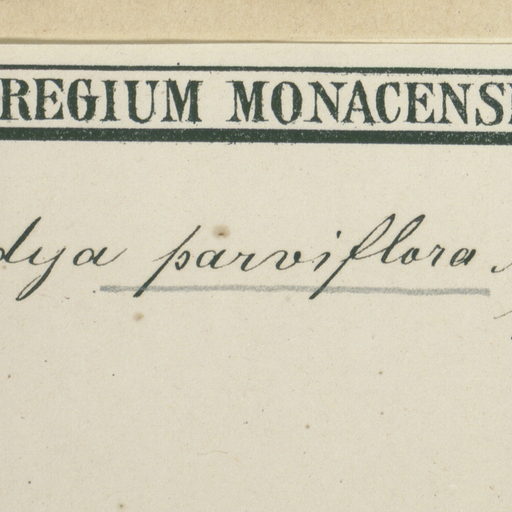 REGIUM MONACENS
dya parviflora